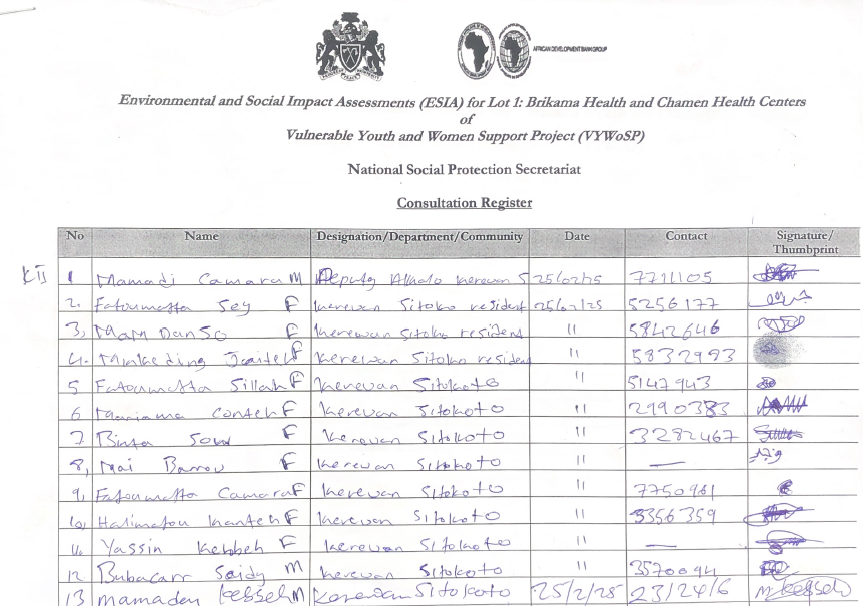 AFRICAN DEVELOPMENT BANK GROUP
Environmental and Social Impact Assessments (ESIA) for Lot 1: Brikama Health and Chamen Health Centers
of
Vulnerable Youth and Women Support Project (VYWoSP)
National Social Protection Secretariat
Consultation Register
No Name Designation/Department/Community Date Contact Signature/
Thumbprint
KII 1 Mamadi Camara M Deputy Alkalo Kerewan S 25/02/25 7711105
2. Fatoumatta Sey F Kerewan Sitoko resident 25/02/25 5256177
3, Mam Danso F Kerewan Sitoko resident 11 5842646
4. F Kerewan Sitoko resident 11 5832993
5 Fatoumatta Sillah F Kerewan Sitokoto 11 5147943
6 Mariama Conteh F Kerewan Sitokoto 11 2990383
7. Binta Sow F Kerewan Sitokoto 11 3282467
8, Mai Barrow F Kerewan Sitokoto 11 —
9, Fatoumatta Camara F Kerewan Sitokoto 11 7750961
10, Halimatou Kanteh F Kerewan Sitokoto 11 3356359
11. Yassin Kebbeh F Kerewan Sitokoto 11 —
12 Bubacarr Saidy M Kerewan Sitokoto 11 3570094
13 mamadou kesseh M Kerewan Sitokoto 25/2/25 23/24/6 M kesseh